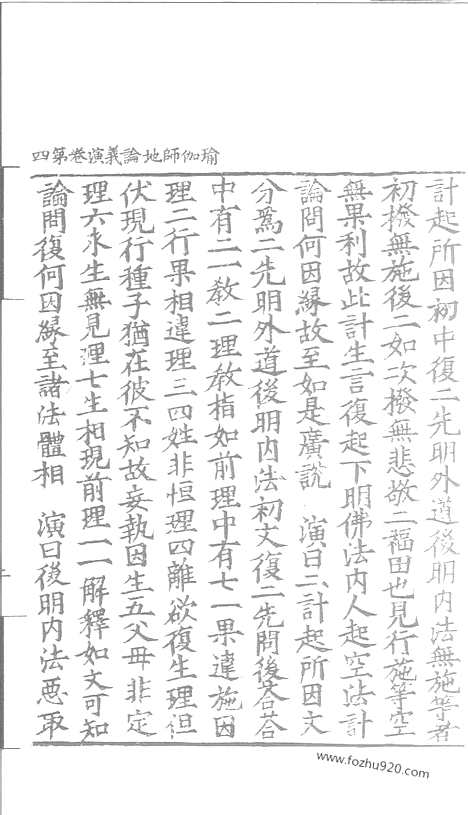 瑜伽師地論義演卷第四
計起所因初中復二先明外道後明內法無施等者
初撥無施後二如次撥無悲敬二福田也見行施等空
無果利故此計生言復起下明佛法內人起空法計
論問何因緣故至如是廣說 演曰三計起所因文
分為二先明外道後明內法初文復二先問後答答
中有二一教二理教指如前理中有七一果違施因
理二行果相違理三四姓非恒理四離欲復生理但
伏現行種子猶在彼不知故妄執因生五父母非定
理六永生無見理七生相現前理一一解釋如文可知
論問復何因緣至諸法體相 演曰後明內法惡取
www.fozhu920.com